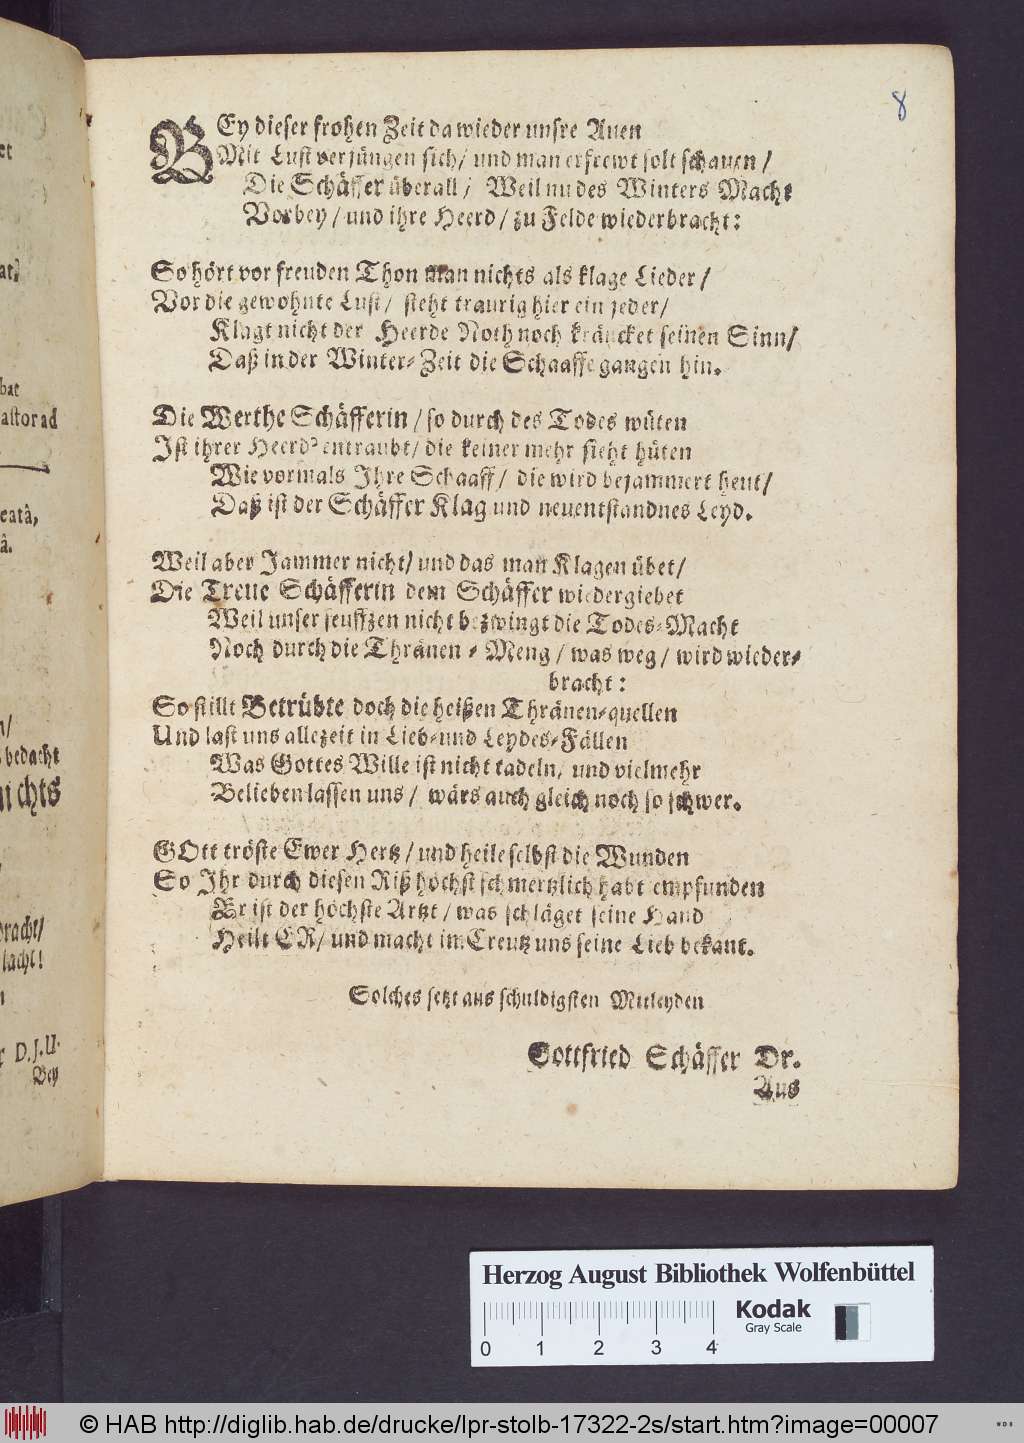 8
BEy dieser frohen Zeit da wieder unsre Auen
Mit Lust verjüngen sich/ und man erfrewt solt schauen/
Die Schäffer überall/ Weil nu des Winters Macht
Vorbey/ und ihre Heerd/ zu Felde wiederbracht:
So hört vor freuden Thon man nichts als klage Lieder/
Vor die gewohnte Lust/ steht traurig hier ein jeder/
Klagt nicht der Heerde Noth noch kräncket seinen Sinn/
Daß in der Winter-Zeit die Schaaffe gangen hin.
Die Werthe Schäfferin/ so durch des Todes wüten
Ist ihrer Heerd' entraubt/ die keiner mehr sieht hüten
Wie vormals Ihre Schaaff/ die wird bejammert heut/
Daß ist der Schäffer Klag und neuentstandnes Leyd.
Weil aber Jammer nicht/ und das man Klagen übet/
Die Treue Schäfferin dem Schäffer wiedergiebet
Weil unser seufftzen nicht bezwingt die Todes-Macht
Noch durch die Thränen-Meng/ was weg/ wird wieder-
bracht:
So stillt Betrübte doch die heißen Thränen-quellen
Und last uns allezeit in Lieb- und Leydes-Fällen
Was Gottes Wille ist nicht tadeln/ und vielmehr
Belieben lassen uns/ wärs auch gleich noch so schwer.
GOtt tröste Ewer Hertz/ und heile selbst die Wunden
So Ihr durch diesen Riß höchst schmertzlich habt empfunden
Er ist der höchste Artzt/ was schläget seine Hand
Heilt ER/ und macht im Creutz uns seine Lieb bekant.
Solches setzt aus schuldigsten Mitleyden
Gottfried Schäffer Dr.
Aus
bat
astorad
eatâ,
â.
bedacht
nichts
bracht/
lacht!
D.J.U.
Bey
Herzog August Bibliothek Wolfenbüttel
Kodak
Gray Scale
0 1 2 3 4
© HAB http://diglib.hab.de/drucke/lpr-stolb-17322-2s/start.htm?image=00007